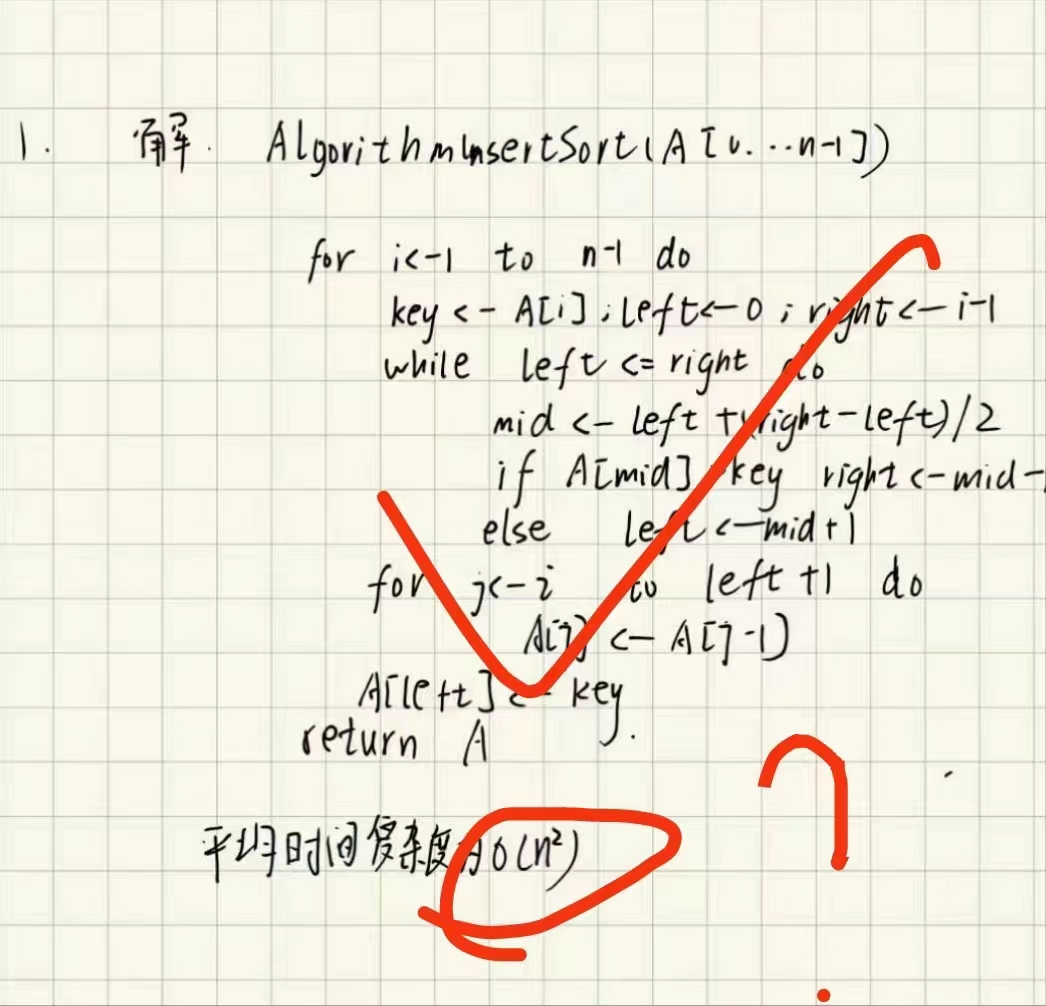 1. 解. AlgorithmInsertSort(A[0...n-1])
for i<-1 to n-1 do
key <- A[i]; left<-0; right<-i-1
while left <= right do
mid <- left +(right-left)/2
if A[mid] key right<-mid-
else left <-mid+1
for j<-i to left+1 do
A[j] <- A[j-1]
A[left] <- key
return A
平均时间复杂度为O(n²)
?